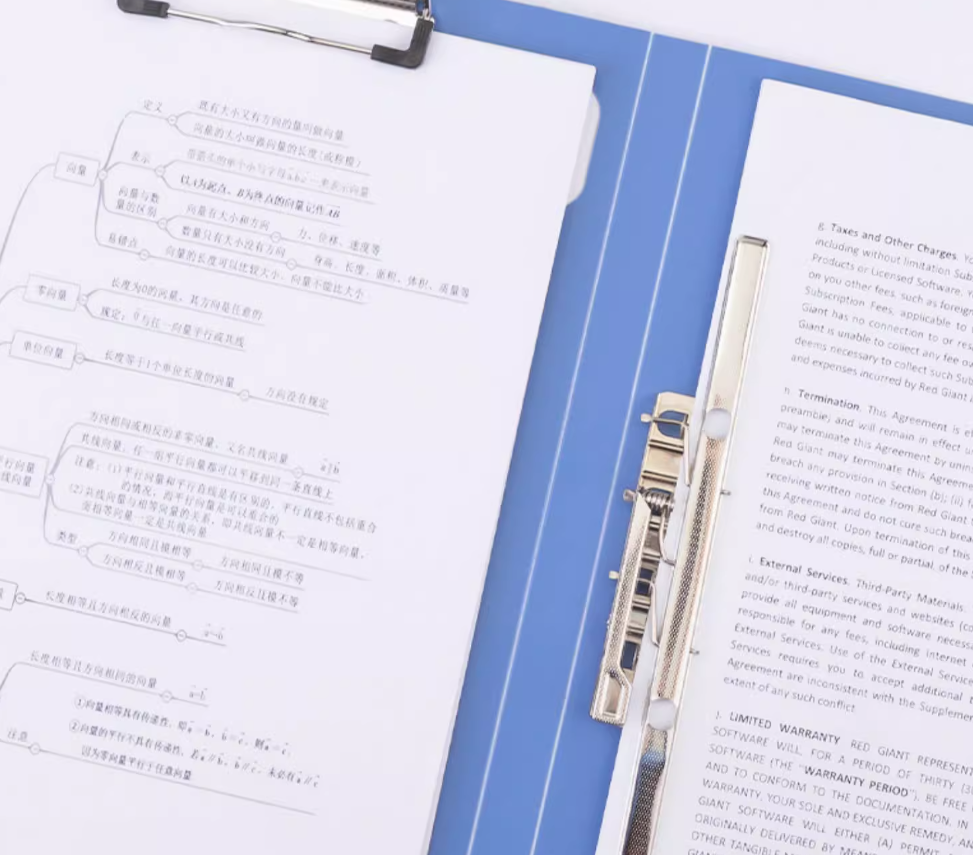 定义
既有大小又有方向的量叫做向量
向量的大小叫做向量的长度(或称模)
向量
表示
带箭头的单个小写字母abc…来表示向量
以A为起点、B为终点的向量记作AB
向量与数
量的区别
向量有大小和方向
力、位移、速度等
数量只有大小没有方向
身高、长度、面积、体积、质量等
易错点
向量的长度可以比较大小、向量不能比大小
零向量
长度为0的向量、其方向是任意的
规定：0与任一向量平行或共线
单位向量
长度等于1个单位长度的向量
方向没有规定
行向量
线向量
方向相同或相反的非零向量、又名共线向量
a∥b
共线向量、任一组平行向量都可以平移到同一条直线上
注意：(1)平行向量和平行直线是有区别的、平行直线不包括重合
的情况、而平行向量是可以重合的
(2)共线向量与相等向量的关系、即共线向量不一定是相等向量、
而相等向量一定是共线向量
类型
方向相同且模相等
方向相同且模不等
方向相反且模相等
方向相反且模不等
长度相等且方向相反的向量
长度相等且方向相同的向量
a=b
注意
①向量相等具有传递性、即a=b、b=c、则a=c、
②向量的平行不具有传递性、若a∥b、b∥c、未必有a∥c
因为零向量平行于任意向量
g. Taxes and Other Charges. Yo
including without limitation Sub
Products or Licensed Software. Y
on you other fees, such as foreign
Subscription Fees, applicable to
Giant has no connection to or res
Giant is unable to collect any fee ov
deems necessary to collect such Sub
and expenses incurred by Red Giant
h. Termination. This Agreement is ef
preamble) and will remain in effect u
may terminate this Agreement by unin
Red Giant may terminate this Agreem
breach any provision in Section (b); (ii)
receiving written notice from Red Giant
this Agreement and do not cure such brea
from Red Giant. Upon termination of this
and destroy all copies, full or partial, of the
i. External Services. Third-Party Materials.
and/or third-party services and websites (co
provide all equipment and software necess
responsible for any fees, including Internet
External Services. Use of the External Service
Services requires you to accept additional t
Agreement are inconsistent with the Suppleme
extent of any such conflict.
j. LIMITED WARRANTY RED GIANT REPRESENT
SOFTWARE WILL, FOR A PERIOD OF THIRTY (3
SOFTWARE (THE "WARRANTY PERIOD"), BE FREE
AND TO CONFORM TO THE DOCUMENTATION. IN
WARRANTY, YOUR SOLE AND EXCLUSIVE REMEDY, AN
GIANT SOFTWARE WILL EITHER (A) PERMIT
ORIGINALLY DELIVERED BY MEANS
OTHER TANGIBLE